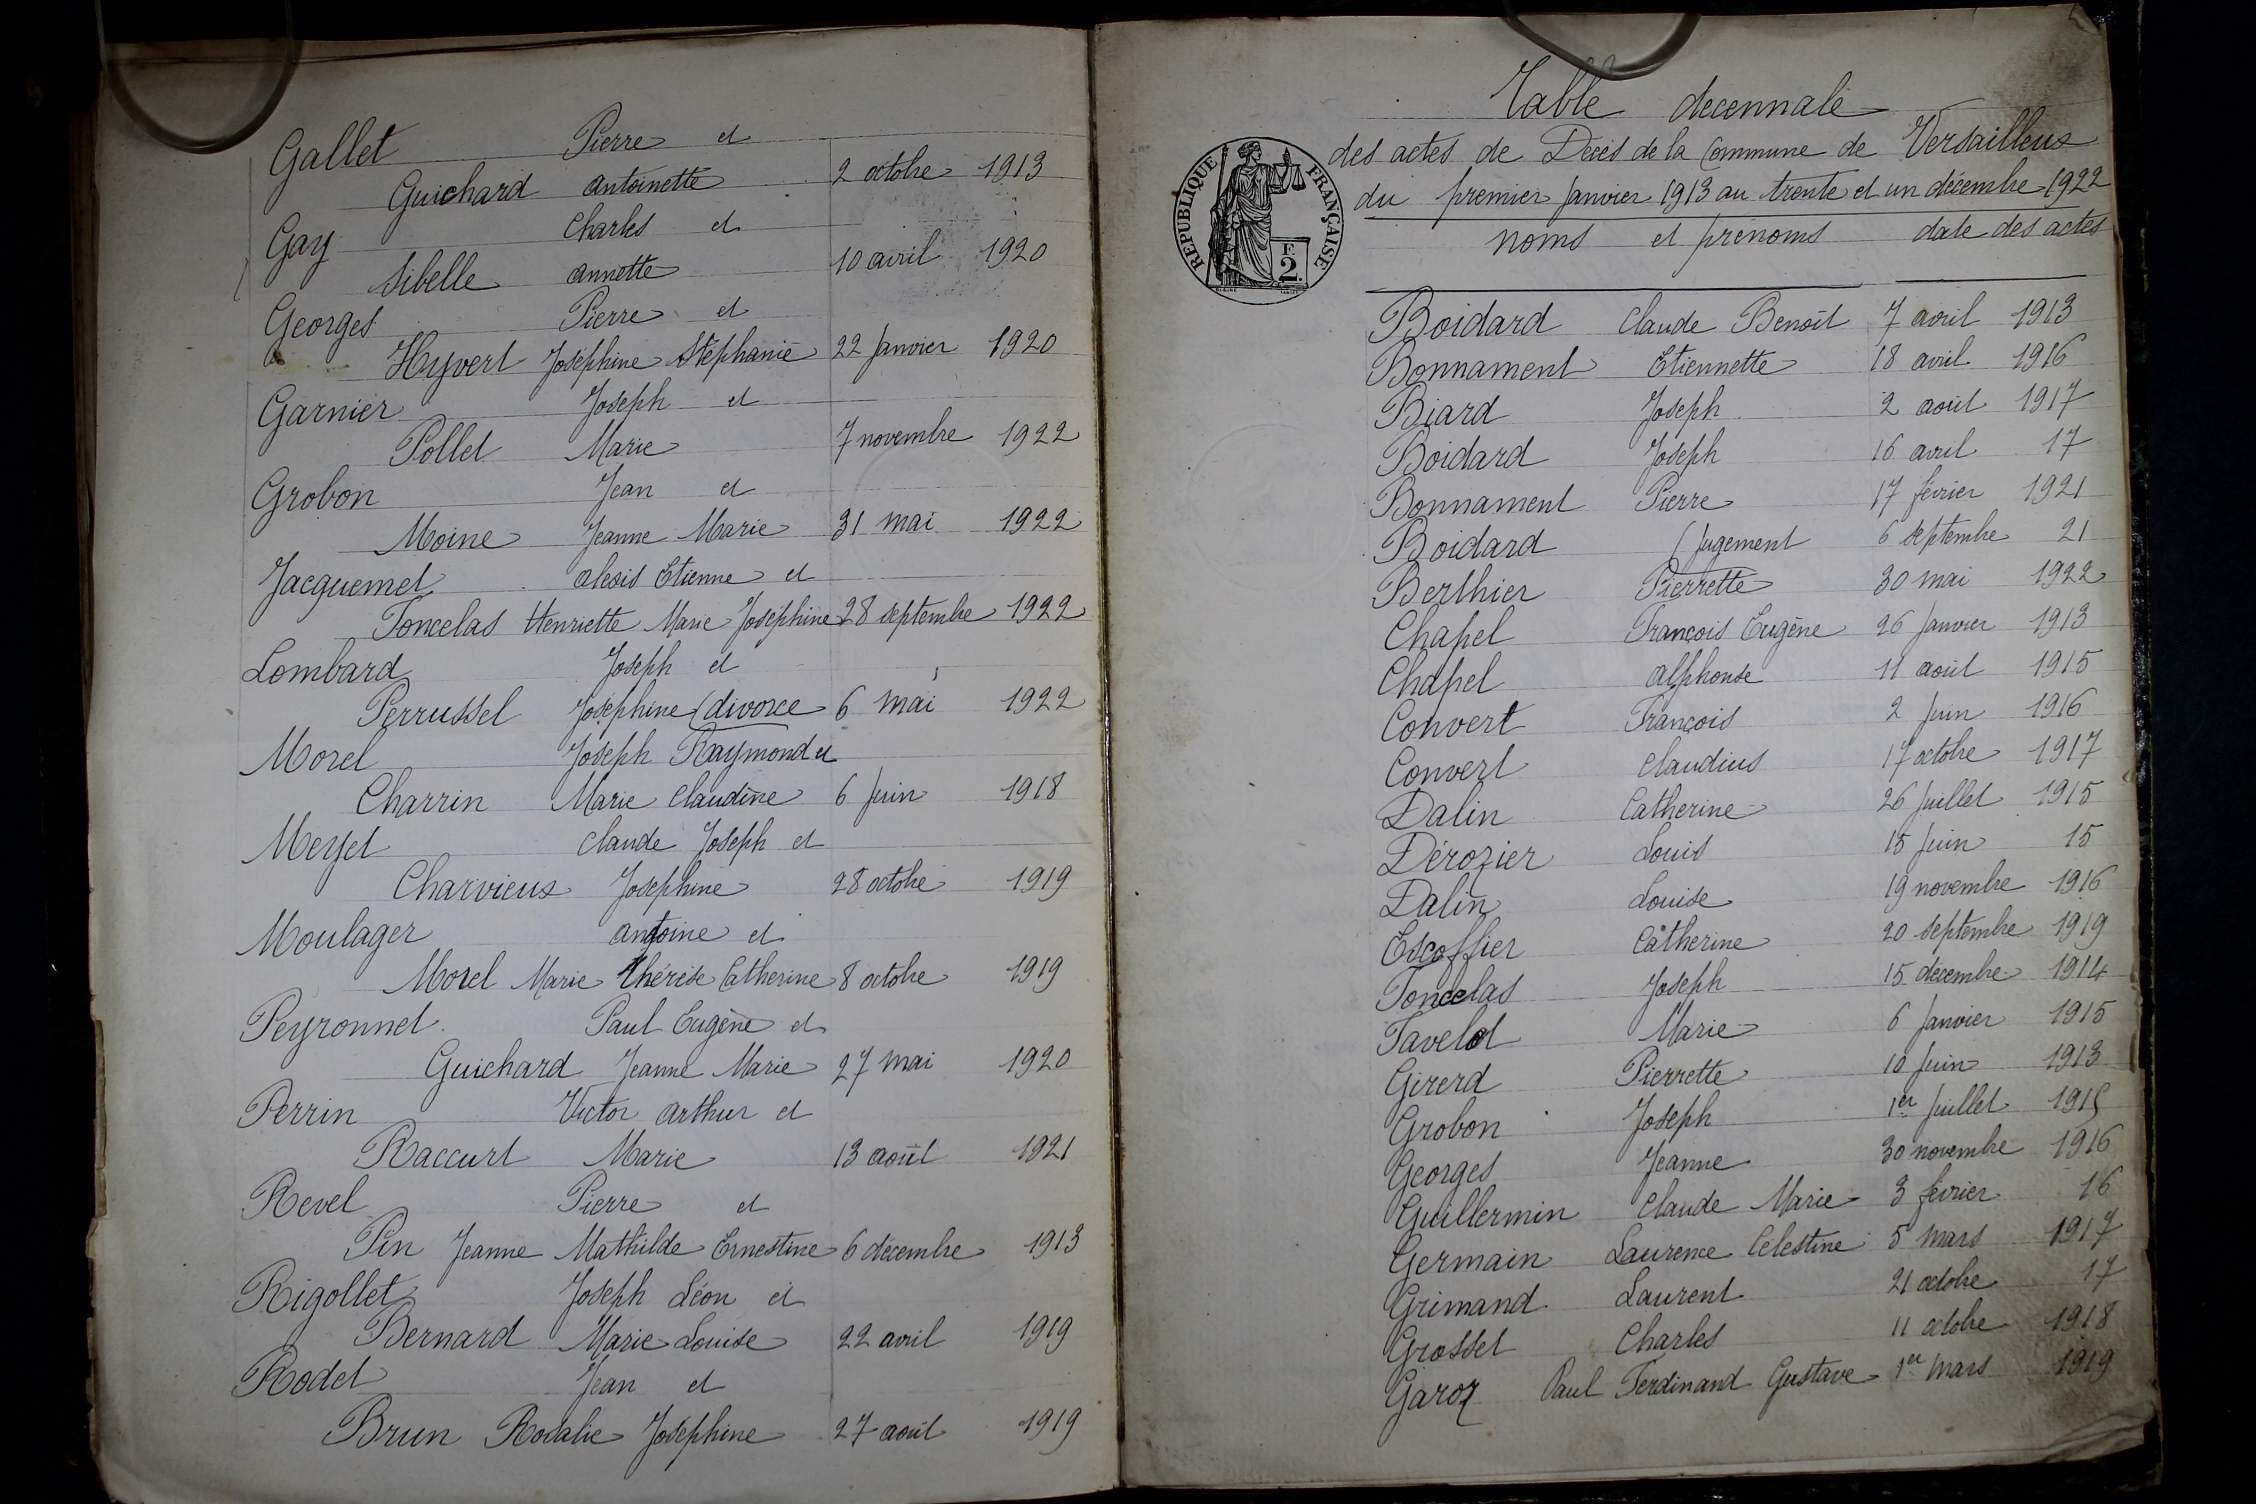 Gallet Pierre et
Guichard Antoinette 2 octobre 1913
Gay Charles et
Sibelle Annette 10 avril 1920
Georges Pierre et
Hyvert Joséphine Stéphanie 22 Janvier 1920
Garnier Joseph et
Pollet Marie 7 novembre 1922
Grobon Jean et
Moine Jeanne Marie 31 mai 1922
Jacquemet Alexis Etienne et
Foncelas Henriette Marie Joséphine 28 septembre 1922
Lombard Joseph et
Perrussel Joséphine (divorce 6 mai 1922
Morel Joseph Raymond et
Charrin Marie Claudine 6 Juin 1918
Meyet Claude Joseph et
Charvieux Joséphine 28 octobre 1919
Moulager Antoine et
Morel Marie Thérèse Catherine 8 octobre 1919
Peyronnet Paul Eugène et
Guichard Jeanne Marie 27 mai 1920
Perrin Victor Arthur et
Raccurt Marie 13 août 1921
Revel Pierre et
Pin Jeanne Mathilde Ernestine 6 décembre 1913
Rigollet Joseph Léon et
Bernard Marie Louise 22 avril 1919
Rodet Jean et
Brun Rosalie Joséphine 27 août 1919
Table decennale
des actes de Décès de la Commune de Versailleux
du premier Janvier 1913 au trente et un décembre 1922
REPUBLIQUE FRANÇAISE
F.
2.
noms et prénoms date des actes
Boidard Claude Benoît 7 avril 1913
Bonnament Etiennette 18 avril 1916
Biard Joseph 2 août 1917
Boidard Joseph 16 avril 17
Bonnament Pierre 17 février 1921
Boidard (Jugement 6 septembre 21
Berthier Pierrette 30 mai 1922
Chapel François Eugène 26 Janvier 1913
Chapel Alphonse 11 août 1915
Convert François 2 Juin 1916
Convert Claudius 17 octobre 1917
Dalin Catherine 26 Juillet 1915
Dérozier Louis 15 Juin 15
Dalin Louise 19 novembre 1916
Escoffier Catherine 20 septembre 1919
Foncelas Joseph 15 décembre 1914
Favelot Marie 6 Janvier 1915
Girerd Pierrette 10 Juin 1913
Grobon Joseph 1er Juillet 1915
Georges Jeanne 30 novembre 1916
Guillermin Claude Marie 3 février 16
Germain Laurence Celestine 5 mars 1917
Grimand Laurent 21 octobre 17
Grosset Charles 11 octobre 1918
Garoz Paul Ferdinand Gustave 1er mars 1919